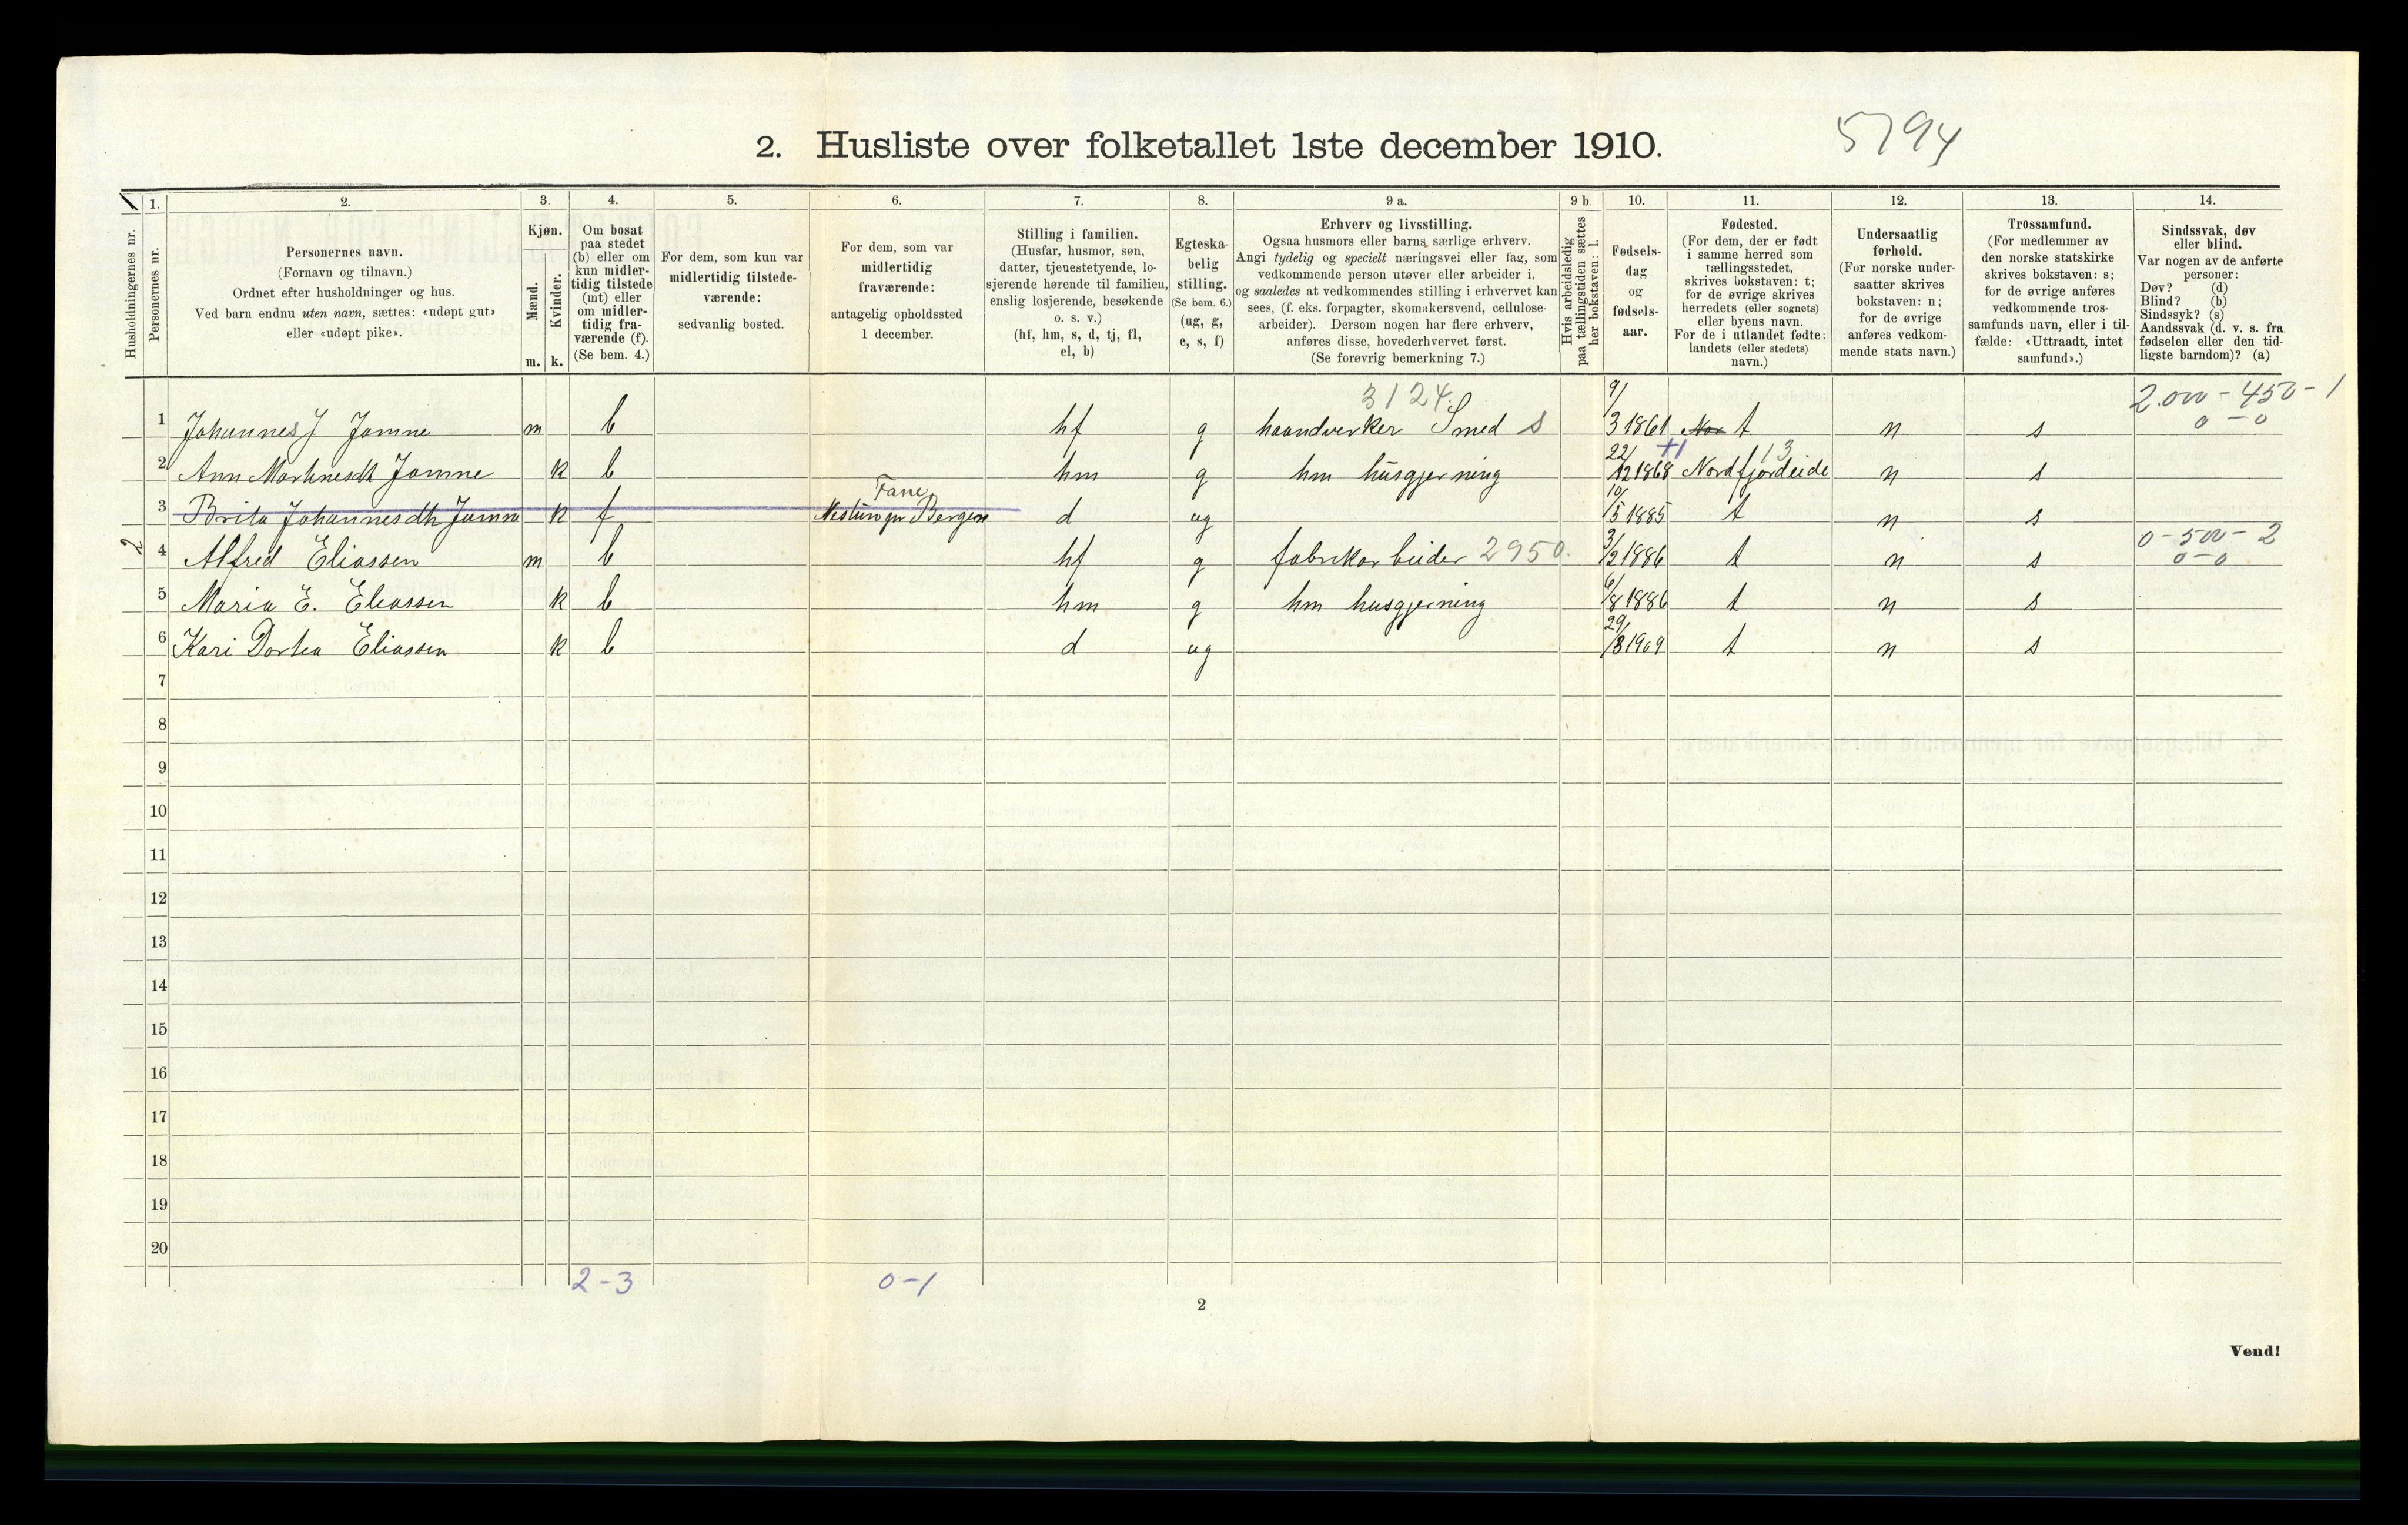 5794
2. Husliste over folketallet 1ste december 1910.
Husholdningernes nr.
1. Personernes nr.
2. Personernes navn.
(Fornavn og tilnavn.)
Ordnet efter husholdninger og hus.
Ved barn endnu uten navn, sættes: «udøpt gut»
eller «udøpt pike».
3. Kjøn.
Mænd. m.
Kvinder. k.
4. Om bosat
paa stedet
(b) eller om
kun midler-
tidig tilstede
(mt) eller
om midler-
tidig fra-
værende (f).
(Se bem. 4.)
5. For dem, som kun var
midlertidig tilstede-
værende:
sedvanlig bosted.
6. For dem, som var
midlertidig
fraværende:
antagelig opholdssted
1 december.
7. Stilling i familien.
(Husfar, husmor, søn,
datter, tjenestetyende, lo-
sjerende hørende til familien,
enslig losjerende, besøkende
o. s. v.)
(hf, hm, s, d, tj, fl,
el, b)
8. Egteska-
belig
stilling.
(Se bem. 6.)
(ug, g,
e, s, f)
9 a. Erhverv og livsstilling.
Ogsaa husmors eller barns særlige erhverv.
Angi tydelig og specielt næringsvei eller fag, som
vedkommende person utøver eller arbeider i,
og saaledes at vedkommendes stilling i erhvervet kan
sees, (f. eks. forpagter, skomakersvend, cellulose-
arbeider). Dersom nogen har flere erhverv,
anføres disse, hovederhvervet først.
(Se forøvrig bemerkning 7.)
9 b Hvis arbeidsledig
paa tællingstiden sættes
her bokstaven: l.
10. Fødsels-
dag
og
fødsels-
aar.
11. Fødested.
(For dem, der er født
i samme herred som
tællingsstedet,
skrives bokstaven: t;
for de øvrige skrives
herredets (eller sognets)
eller byens navn.
For de i utlandet fødte:
landets (eller stedets)
navn.)
12. Undersaatlig
forhold.
(For norske under-
saatter skrives
bokstaven: n;
for de øvrige
anføres vedkom-
mende stats navn.)
13. Trossamfund.
(For medlemmer av
den norske statskirke
skrives bokstaven: s;
for de øvrige anføres
vedkommende tros-
samfunds navn, eller i til-
fælde: «Uttraadt, intet
samfund».)
14. Sindssvak, døv
eller blind.
Var nogen av de anførte
personer:
Døv? (d)
Blind? (b)
Sindssyk? (s)
Aandssvak (d. v. s. fra
fødselen eller den tid-
ligste barndom)? (a)
3124. 9/ 2.000 - 450 - 1
1 Johannes J Jamne m b hf g haandverker Smed s 3 1861 t n s 0 - 0
22/ +1 13
2 Ann Martinesdt Jamne k b hm g hm husgjerning 12 1868 Nordfjordeide n s
Fane 10/
3 Brita Johannesdtr Jamne k f Nestun pr Bergen d ug 5 1885 t n s
0 - 500 - 2
2 4 Alfred Eliassen m b hf g fabrikarbeider 2950. 3/2 1886 t n s 0 - 0
5 Maria E. Eliassen k b hm g hm husgjerning 6/8 1886 t n s
6 Kari Dortea Eliassen k b d ug 29/8 1909 t n s
7
8
9
10
11
12
13
14
15
16
17
18
19
20
2 - 3 0 - 1
2
Vend!